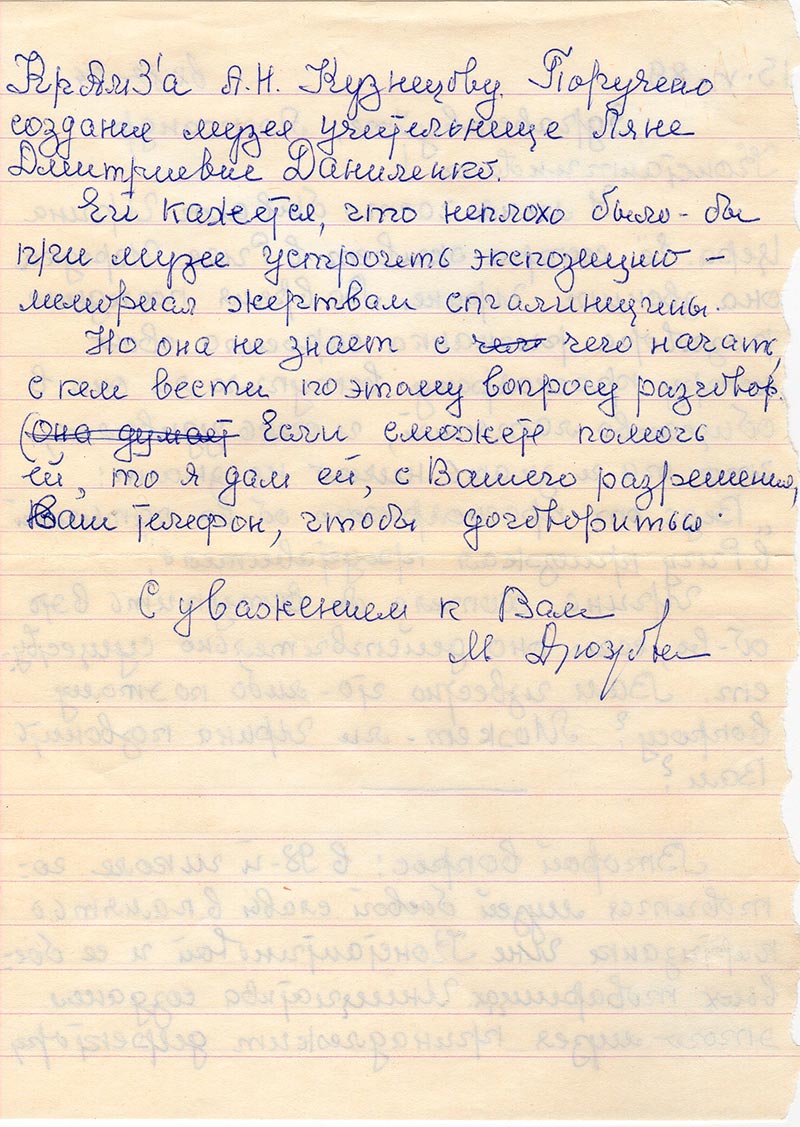 КрАмЗ'а А.Н. Кузнецову. Поручено
создания музея учительнице Ляне
Дмитриевне Даниленко.
Ей кажется, что неплохо было-бы
при музее устроить экспозицию –
мемориал жертвам сталинщины.
Но она не знает с чем чего начать,
с кем вести по этому вопросу разговор.
(Она думает Если сможете помочь
ей, то я дам ей, с Вашего разрешения,
Ваш телефон, чтобы договориться.
С уважением к Вам
М